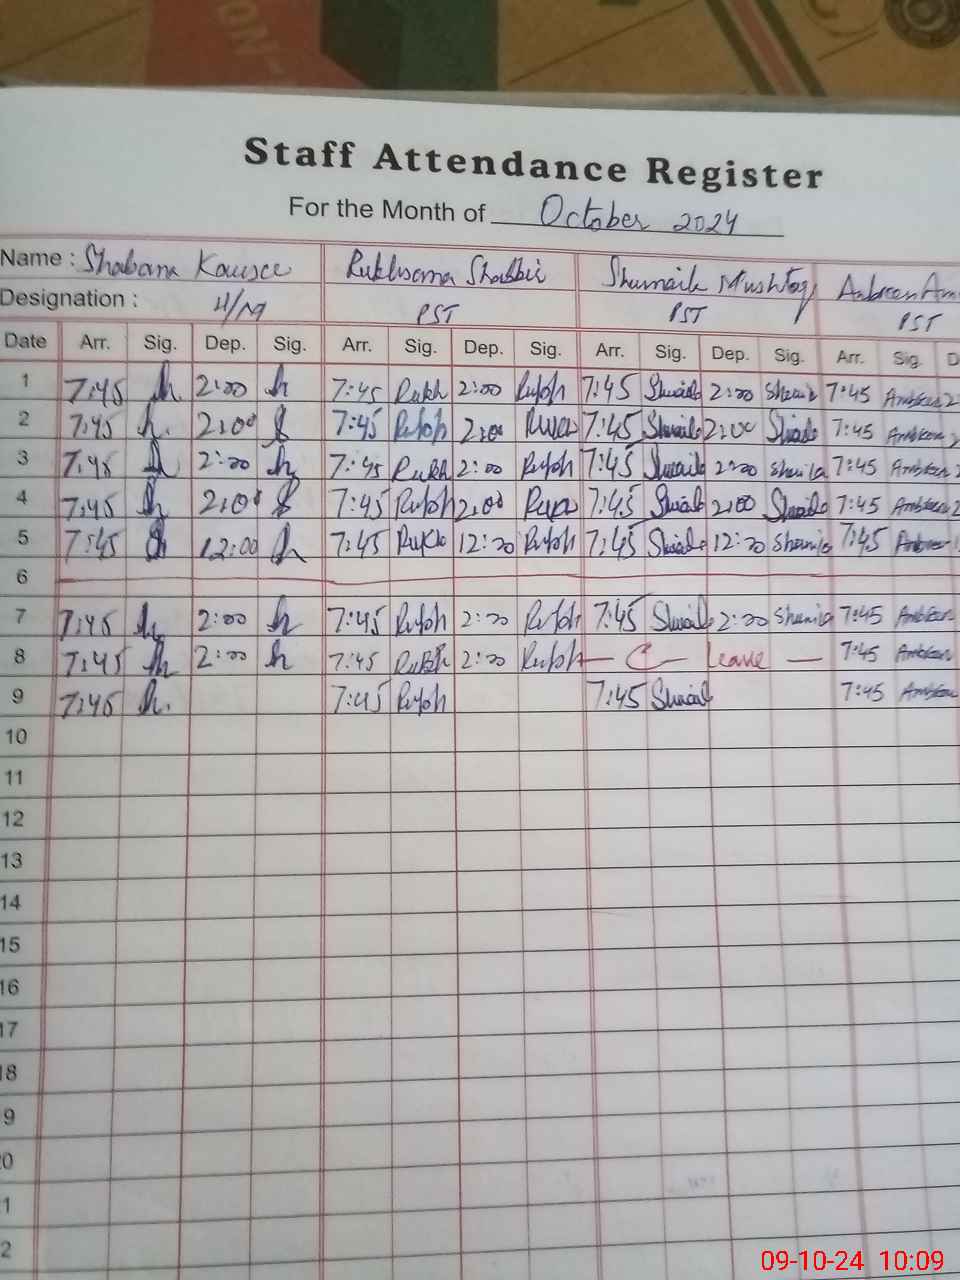 Staff Attendance Register
For the Month of October 2024
Name : Shabana Kausce Rukhsana Shabbir Shumaila Mushtaq Ambreen Am
Designation : H/M PST PST PST
Date Arr. Sig. Dep. Sig. Arr. Sig. Dep. Sig. Arr. Sig. Dep. Sig. Arr. Sig. D
1 7:45 2:00 7:45 Rukh 2:00 Rukh 7:45 2:00 7:45 Ambreen 2
2 7:45 2:00 7:45 Rukh 2:00 7:45 2:00 7:45 Ambreen 2
3 7:45 2:00 7:45 Rukh 2:00 Rukh 7:45 2:00 7:45 Ambreen 2
4 7:45 2:00 7:45 Rukh 2:00 7:45 2:00 7:45 Ambreen 2
5 7:45 12:00 7:45 Rukh 12:00 Rukh 7:45 12:00 7:45 Ambreen
6
7 7:45 2:00 7:45 Rukh 2:00 Rukh 7:45 2:00 7:45 Ambreen
8 7:45 2:00 7:45 Rukh 2:00 Rukh — C — Leave — 7:45 Ambreen
9 7:45 7:45 Rukh 7:45 7:45 Ambreen
10
11
12
13
14
15
16
17
18
9
0
1
2
09-10-24 10:09